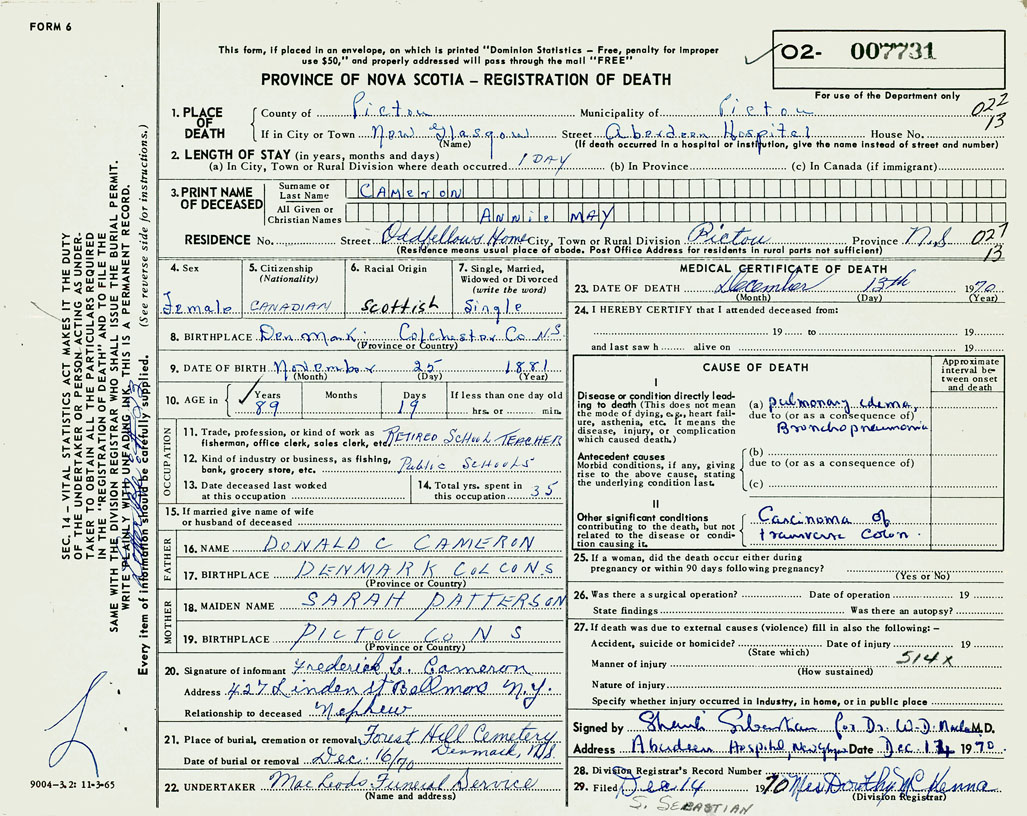 FORM 6
This form, if placed in an envelope, on which is printed "Dominion Statistics – Free, penalty for improper
use $50," and properly addressed will pass through the mail "FREE"
PROVINCE OF NOVA SCOTIA – REGISTRATION OF DEATH
02- 007731
For use of the Department only
022
13
1. PLACE OF DEATH
County of Pictou Municipality of Pictou
If in City or Town New Glasgow Street Aberdeen Hospital House No.
(Name) (If death occurred in a hospital or institution, give the name instead of street and number)
2. LENGTH OF STAY (in years, months and days)
(a) In City, Town or Rural Division where death occurred 1 DAY (b) In Province (c) In Canada (if immigrant)
3. PRINT NAME OF DECEASED
Surname or Last Name CAMERON
All Given or Christian Names ANNIE MAY
RESIDENCE No. Street Oddfellows Home City, Town or Rural Division Pictou Province N.S
(Residence means usual place of abode. Post Office Address for residents in rural parts not sufficient)
027
13
4. Sex
Female
5. Citizenship
(Nationality)
CANADIAN
6. Racial Origin
Scottish
7. Single, Married,
Widowed or Divorced
(write the word)
Single
8. BIRTHPLACE Denmark Colchester Co NS
(Province or Country)
9. DATE OF BIRTH November 25 1881
(Month) (Day) (Year)
10. AGE in Years 89 Months Days 19 If less than one day old
hrs. or min.
OCCUPATION
11. Trade, profession, or kind of work as
fisherman, office clerk, sales clerk, etc. RETIRED SCHOOL TEACHER
12. Kind of industry or business, as fishing,
bank, grocery store, etc. Public SCHOOLS
13. Date deceased last worked
at this occupation
14. Total yrs. spent in
this occupation 35
15. If married give name of wife
or husband of deceased
FATHER
16. NAME DONALD C CAMERON
17. BIRTHPLACE DENMARK COL CO NS
(Province or Country)
MOTHER
18. MAIDEN NAME SARAH PATTERSON
19. BIRTHPLACE PICTOU CO N S
(Province or Country)
20. Signature of informant Frederick L. Cameron
Address 427 Linden St Bellmore N.Y.
Relationship to deceased Nephew
21. Place of burial, cremation or removal Forest Hill Cemetery
Denmark, N.S.
Date of burial or removal Dec. 16/70
22. UNDERTAKER MacLeods Funeral Service
(Name and address)
MEDICAL CERTIFICATE OF DEATH
23. DATE OF DEATH December 13th 1970
(Month) (Day) (Year)
24. I HEREBY CERTIFY that I attended deceased from:
19 to 19
and last saw h alive on 19
CAUSE OF DEATH
Approximate
interval be-
tween onset
and death
I
Disease or condition directly lead-
ing to death (This does not mean
the mode of dying, e.g., heart fail-
ure, asthenia, etc. It means the
disease, injury, or complication
which caused death.)
(a) pulmonary edema,
due to (or as a consequence of)
Bronchopneumonia
Antecedent causes
Morbid conditions, if any, giving
rise to the above cause, stating
the underlying condition last.
(b)
due to (or as a consequence of)
(c)
II
Other significant conditions
contributing to the death, but not
related to the disease or condi-
tion causing it.
Carcinoma of
transverse colon.
25. If a woman, did the death occur either during
pregnancy or within 90 days following pregnancy?
(Yes or No)
26. Was there a surgical operation? Date of operation 19
State findings Was there an autopsy?
27. If death was due to external causes (violence) fill in also the following: –
Accident, suicide or homicide? Date of injury 19
(State which)
514X
Manner of injury
(How sustained)
Nature of injury
Specify whether injury occurred in industry, in home, or in public place
Signed by Sebastian for Dr. W.D. M.D.
Address Aberdeen Hospital, New Glasgow Date Dec 14 1970.
28. Division Registrar's Record Number
29. Filed Dec 14 1970 Mrs Dorothy McKenna
(Division Registrar)
S. SEBASTIAN
SEC. 14 – VITAL STATISTICS ACT MAKES IT THE DUTY
OF THE UNDERTAKER OR PERSON ACTING AS UNDER-
TAKER TO OBTAIN ALL THE PARTICULARS REQUIRED
IN THE "REGISTRATION OF DEATH" AND TO FILE THE
SAME WITH THE DIVISION REGISTRAR WHO SHALL ISSUE THE BURIAL PERMIT.
WRITE PLAINLY WITH UNFADING INK. THIS IS A PERMANENT RECORD.
Every item of information should be carefully supplied. (See reverse side for instructions.)
9004–3.2: 11-3-65